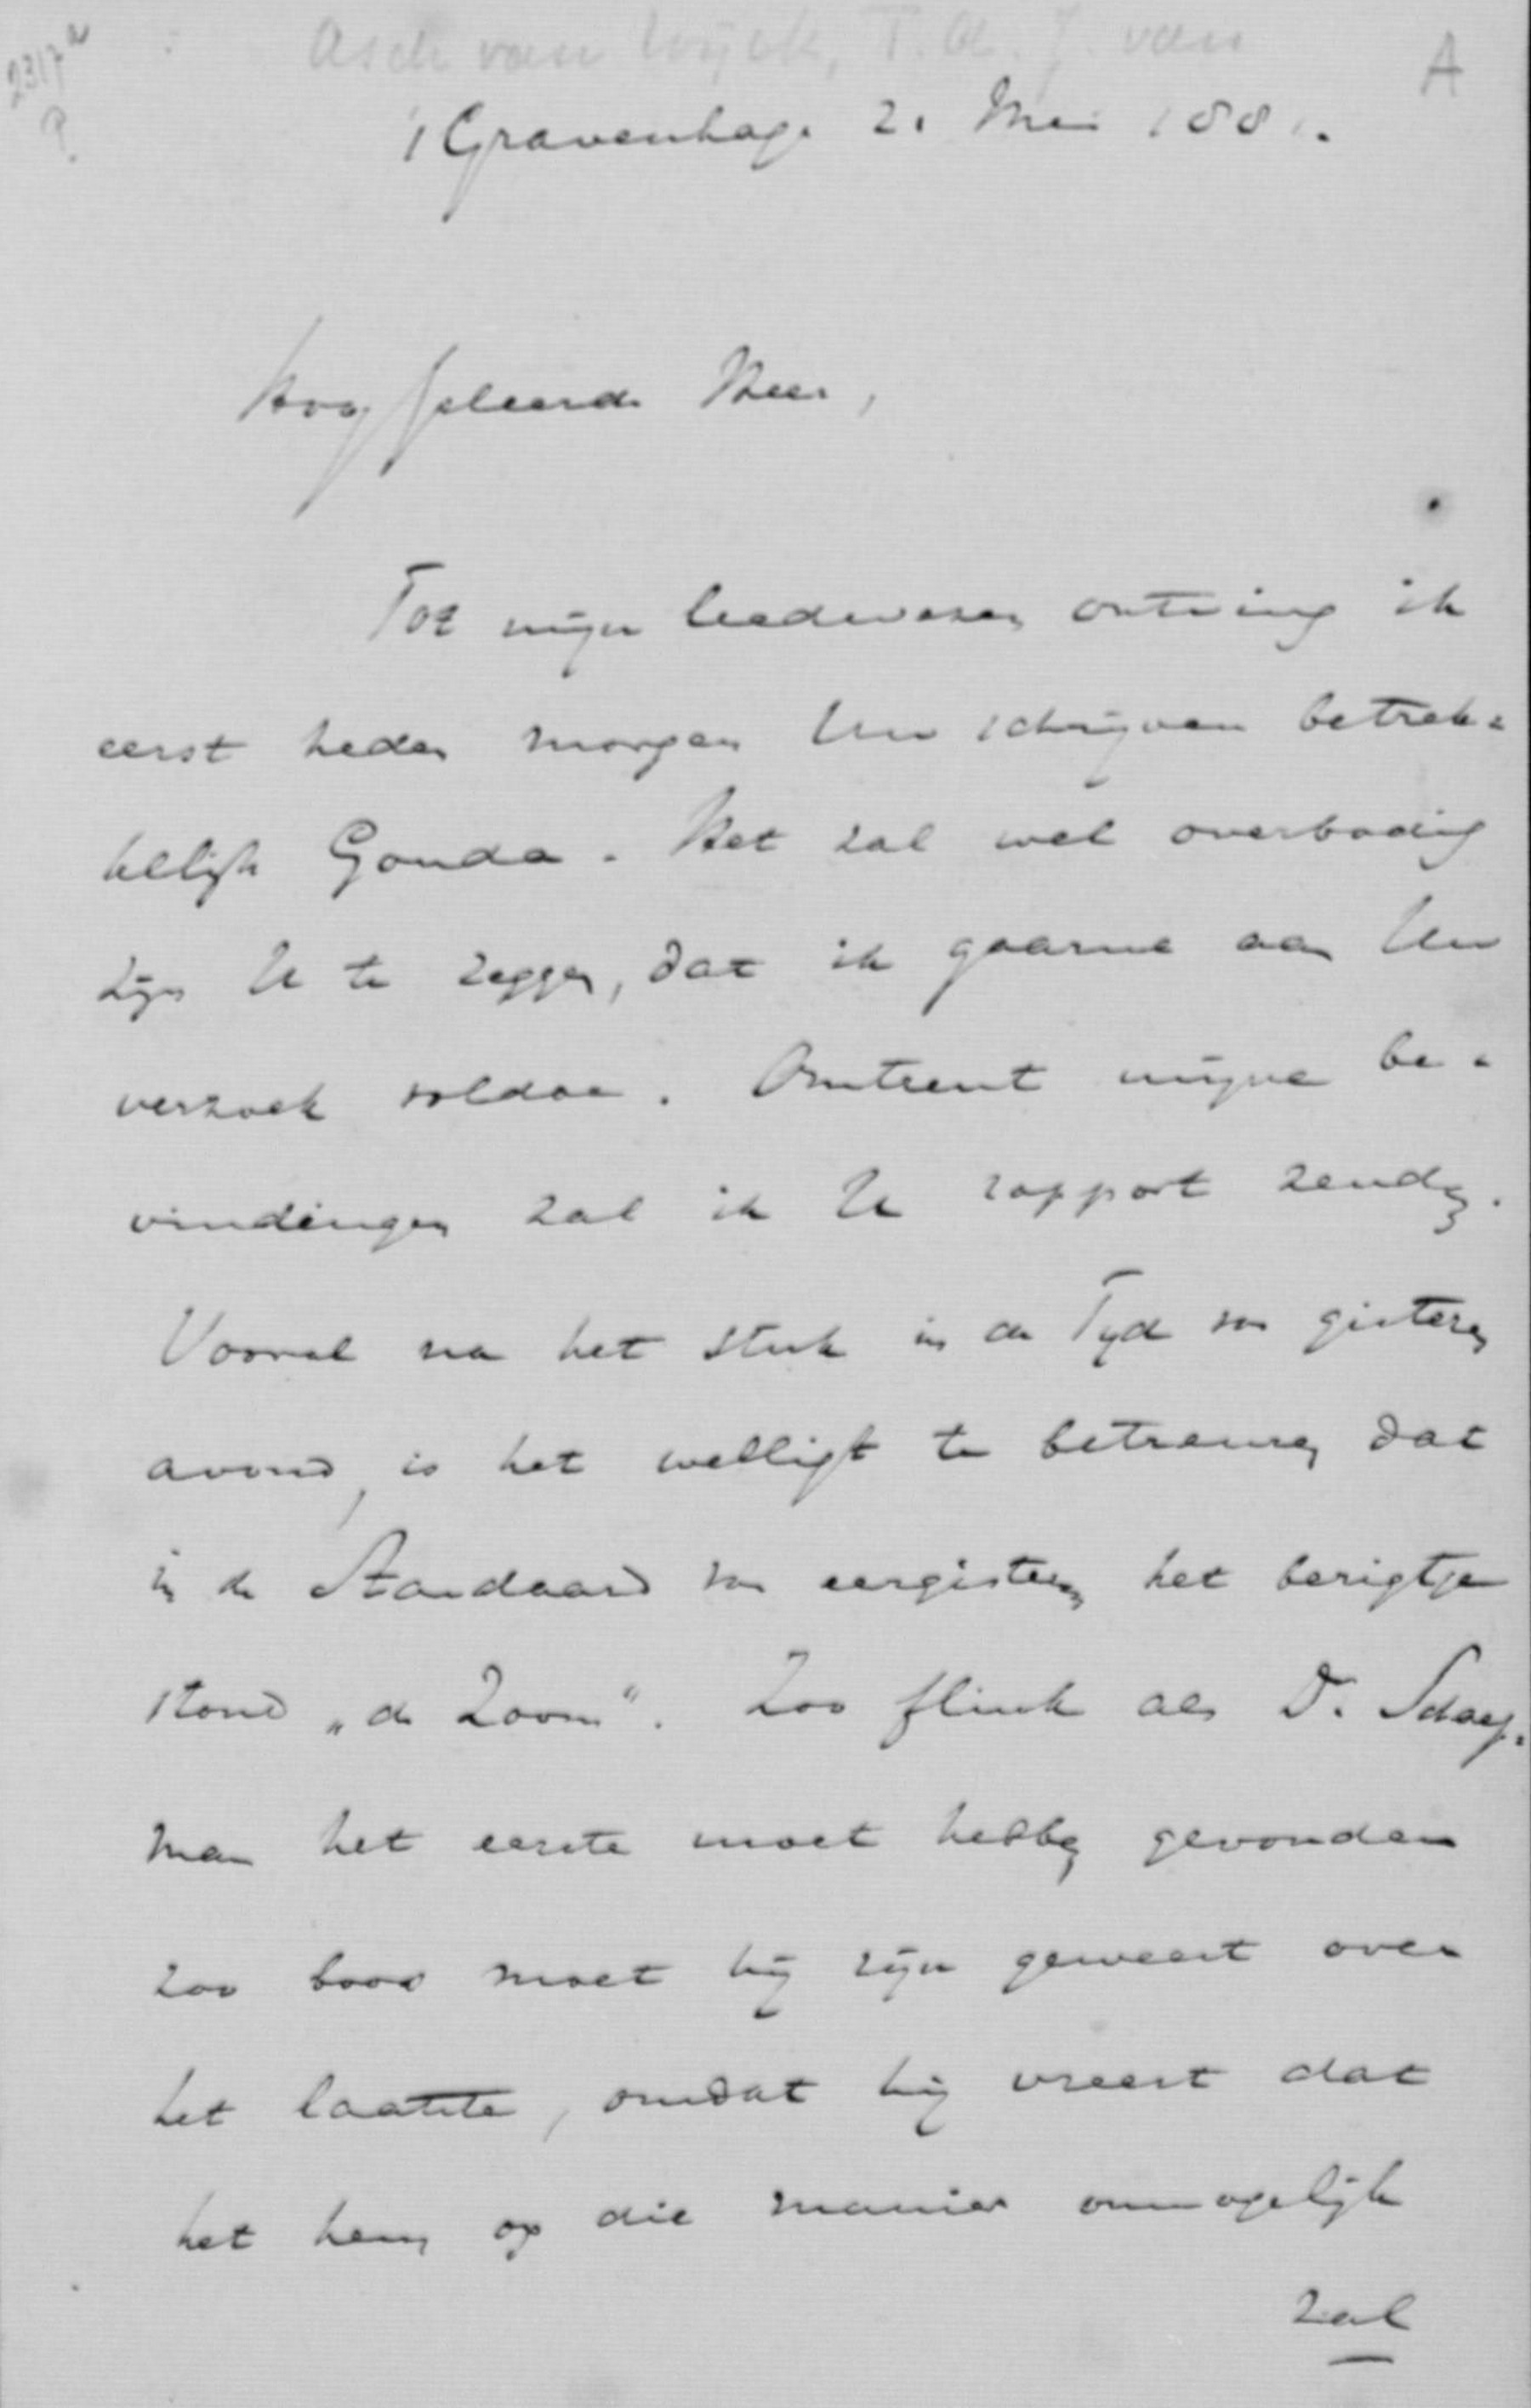 2317a
?
Asch van Wijck, T. A. J. van
A
's Gravenhage 21 Mei 1881.
Hooggeleerde Heer,
Tot mijn leedwezen ontving ik
eerst heden morgen Uw schrijven betrek=
kelijk Gouda. Het zal wel overbodig
zijn U te zeggen, dat ik gaarne aan Uw
verzoek voldoe. Omtrent mijne be=
vindingen zal ik U rapport zenden.
Vooral na het stuk in de Tijd van gisteren
avond, is het welligt te betreuren dat
in de Standaard van eergisteren het berigtje
stond „de Zoom". Zoo flink als Dr. Schaep=
man het eerste moet hebben gevonden
zoo boos moet hij zijn geweest over
het laatste, omdat hij vreest dat
het hem op die manier onmogelijk
zal